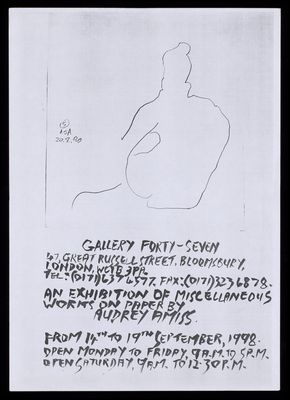 5
ASA
20.7.90
GALLERY FORTY-SEVEN
47, GREAT RUSSELL STREET, BLOOMSBURY,
LONDON, WC1B 3PA.
TEL: (0171)6374577. FAX: (0171)3236878.
AN EXHIBITION OF MISCELLANEOUS
WORKS ON PAPER BY
AUDREY AMISS.
FROM 14TH TO 19TH SEPTEMBER, 1998.
OPEN MONDAY TO FRIDAY, 9A.M. TO 5P.M.
OPEN SATURDAY, 9A.M. TO 12.30P.M.